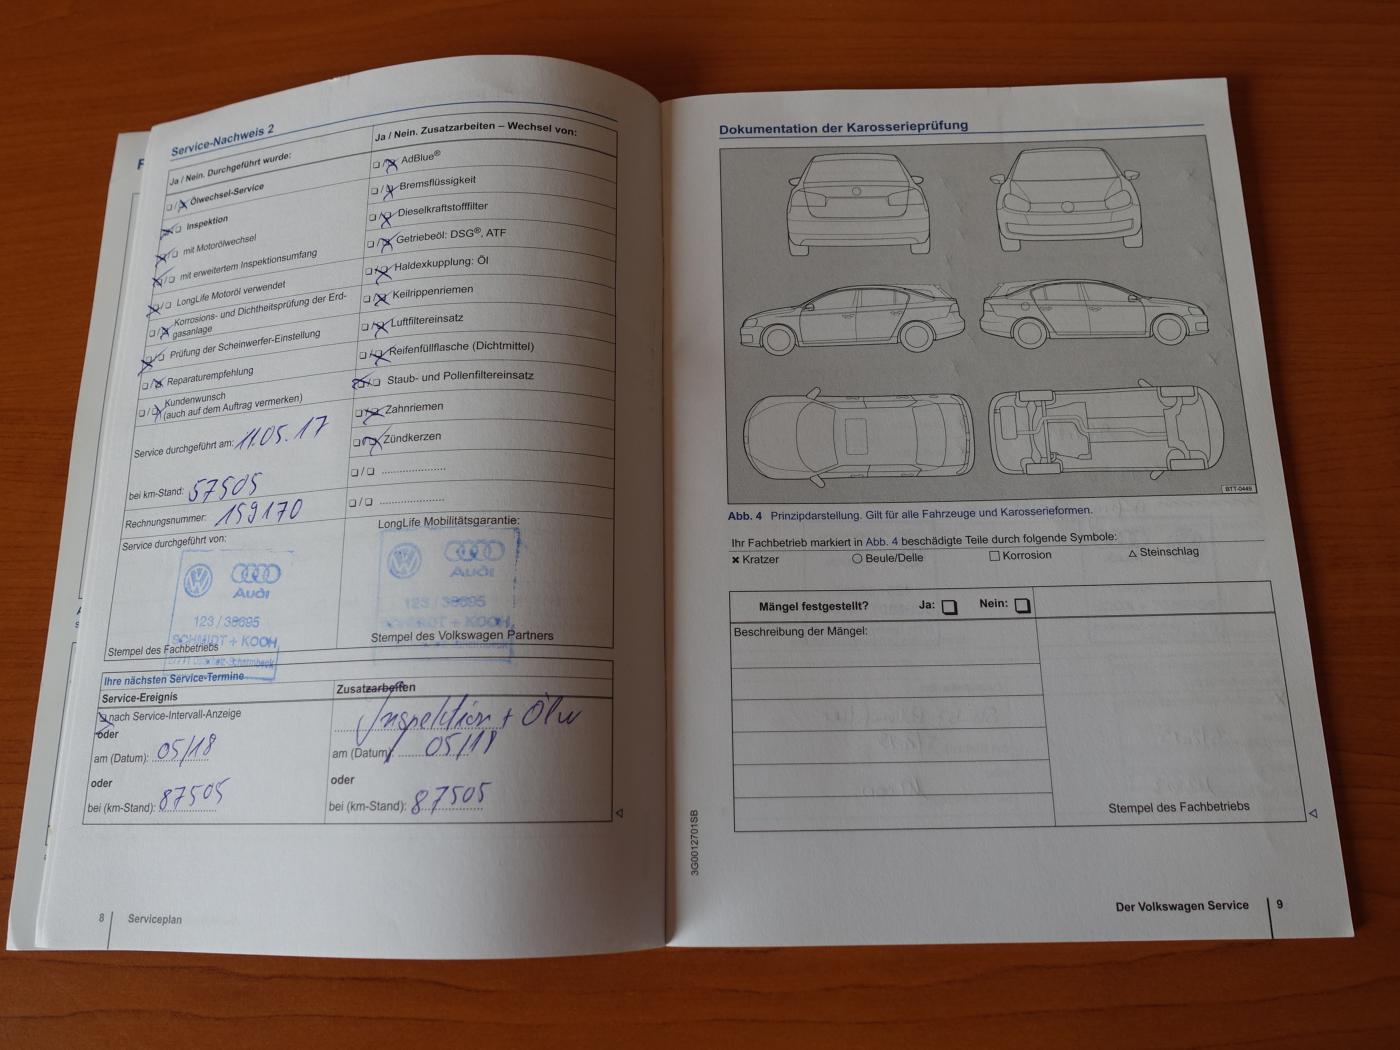 Service-Nachweis 2
Ja / Nein. Durchgeführt wurde:
Ölwechsel-Service
Inspektion
mit Motorölwechsel
mit erweitertem Inspektionsumfang
LongLife Motoröl verwendet
Korrosions- und Dichtheitsprüfung der Erd-
gasanlage
Prüfung der Scheinwerfer-Einstellung
Reparaturempfehlung
Kundenwunsch
(auch auf dem Auftrag vermerken)
Service durchgeführt am: 11.05.17
bei km-Stand: 57505
Rechnungsnummer: 159170
Service durchgeführt von:
Audi
123 / 38695
SCHMIDT + KOCH
Stempel des Fachbetriebs
Ja / Nein. Zusatzarbeiten – Wechsel von:
AdBlue®
Bremsflüssigkeit
Dieselkraftstofffilter
Getriebeöl: DSG®, ATF
Haldexkupplung: Öl
Keilrippenriemen
Luftfiltereinsatz
Reifenfüllflasche (Dichtmittel)
Staub- und Pollenfiltereinsatz
Zahnriemen
Zündkerzen
LongLife Mobilitätsgarantie:
Audi
123 / 38695
SCHMIDT + KOCH
Stempel des Volkswagen Partners
Ihre nächsten Service-Termine
Service-Ereignis
nach Service-Intervall-Anzeige
oder
am (Datum): 05/18
oder
bei (km-Stand): 87505
Zusatzarbeiten
Inspektion + Ölw
am (Datum): 05/18
oder
bei (km-Stand): 87505
8 Serviceplan
Dokumentation der Karosserieprüfung
BTT-0449
Abb. 4 Prinzipdarstellung. Gilt für alle Fahrzeuge und Karosserieformen.
Ihr Fachbetrieb markiert in Abb. 4 beschädigte Teile durch folgende Symbole:
Kratzer Beule/Delle Korrosion Steinschlag
Mängel festgestellt? Ja: Nein:
Beschreibung der Mängel:
Stempel des Fachbetriebs
3G0012701SB
Der Volkswagen Service 9